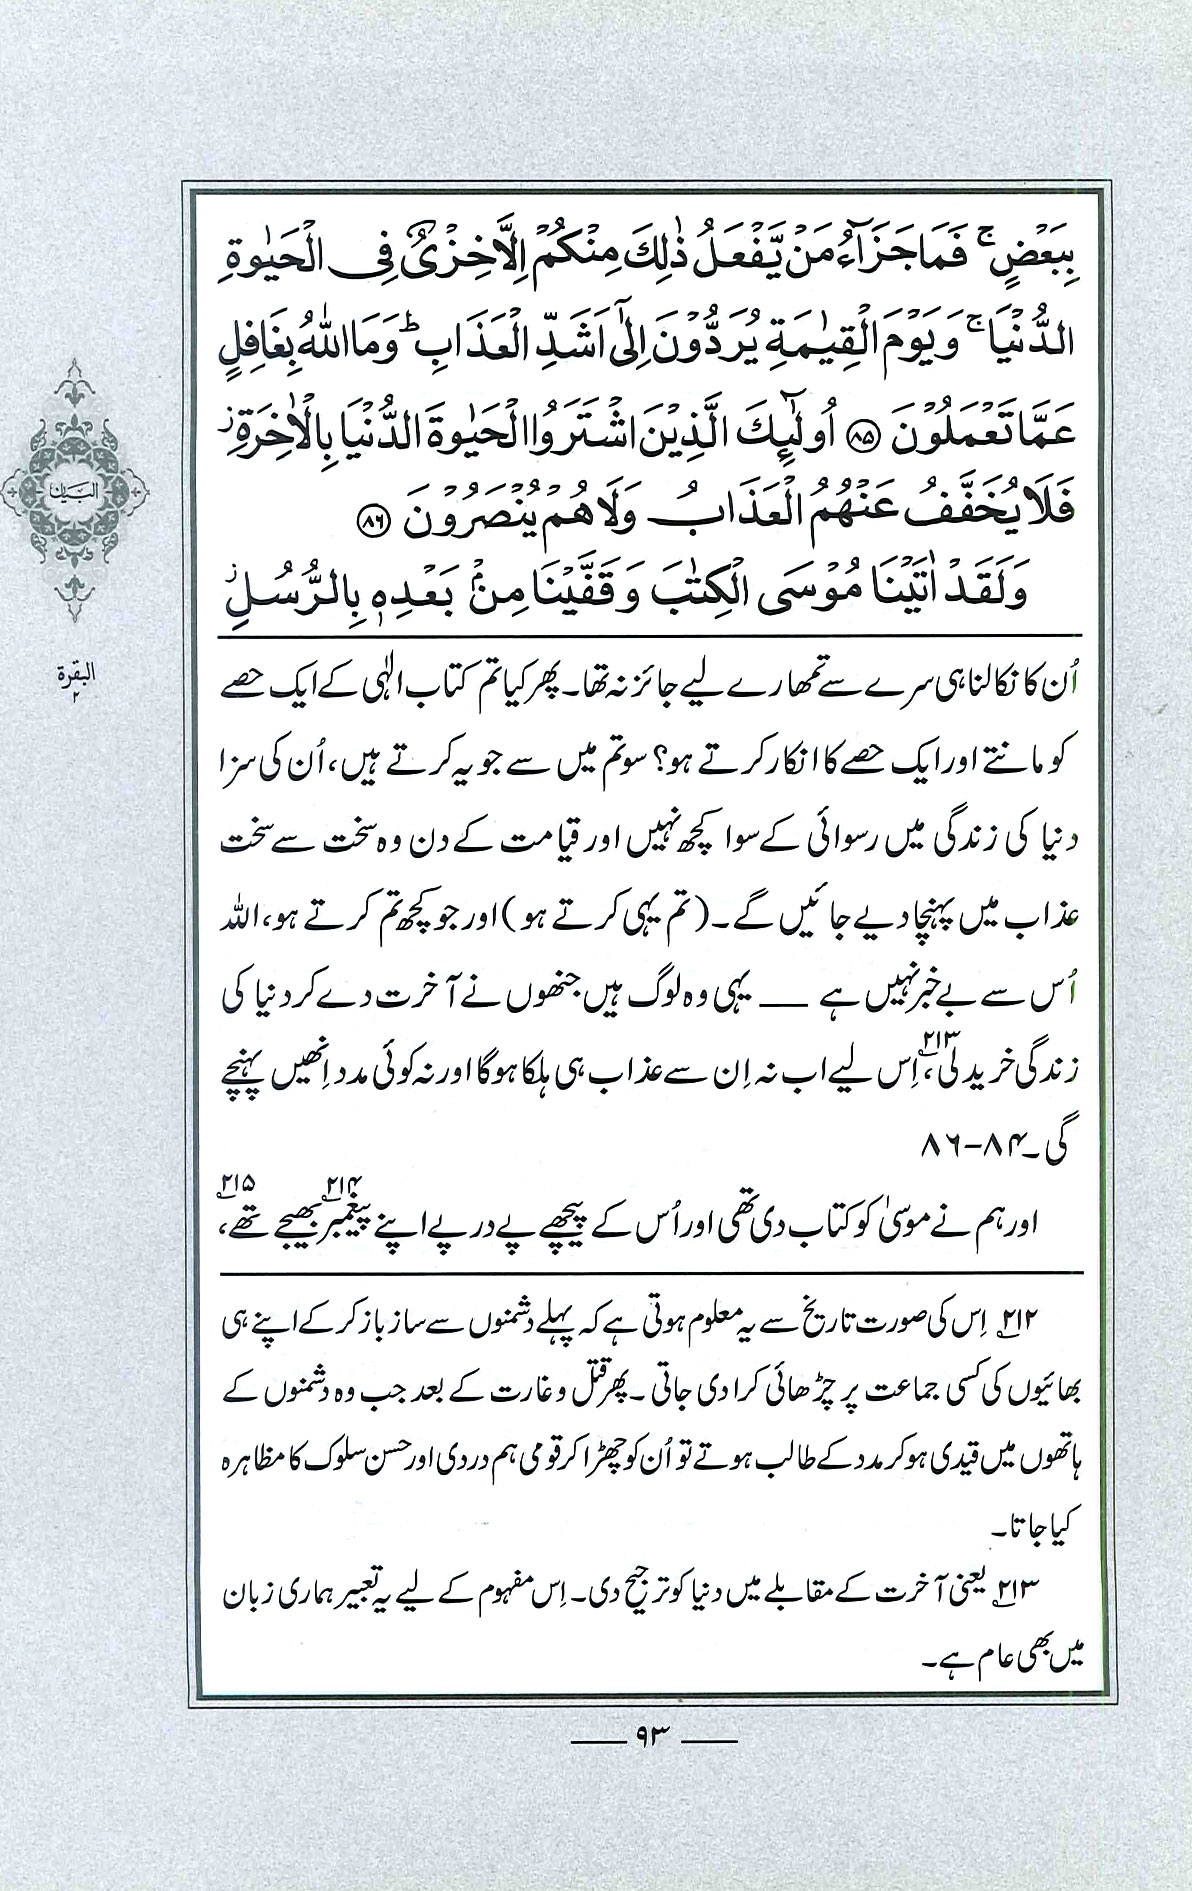 بِبَعۡضٍ ۚ فَمَا جَزَآءُ مَنۡ يَّفۡعَلُ ذٰلِكَ مِنۡكُمۡ اِلَّا خِزۡىٌ فِى الۡحَيٰوةِ
الدُّنۡيَا ۚ وَيَوۡمَ الۡقِيٰمَةِ يُرَدُّوۡنَ اِلٰٓى اَشَدِّ الۡعَذَابِ ؕ وَمَا اللّٰهُ بِغَافِلٍ
عَمَّا تَعۡمَلُوۡنَ ﴿۸۵﴾ اُولٰٓئِكَ الَّذِيۡنَ اشۡتَرَوُا الۡحَيٰوةَ الدُّنۡيَا بِالۡاٰخِرَةِ ز
فَلَا يُخَفَّفُ عَنۡهُمُ الۡعَذَابُ وَلَا هُمۡ يُنۡصَرُوۡنَ ﴿۸۶﴾
وَلَقَدۡ اٰتَيۡنَا مُوۡسَى الۡكِتٰبَ وَقَفَّيۡنَا مِنۡۢ بَعۡدِهٖ بِالرُّسُلِ ز
اُن کا نکالنا ہی سرے سے تمھارے لیے جائز نہ تھا۔ پھر کیا تم کتاب الٰہی کے ایک حصے
کو مانتے اور ایک حصے کا انکار کرتے ہو؟ سو تم میں سے جو یہ کرتے ہیں، اُن کی سزا
دنیا کی زندگی میں رسوائی کے سوا کچھ نہیں اور قیامت کے دن وہ سخت سے سخت
عذاب میں پہنچا دیے جائیں گے۔ (تم یہی کرتے ہو) اور جو کچھ تم کرتے ہو، اللہ
اُس سے بے خبر نہیں ہے ــــ یہی وہ لوگ ہیں جنھوں نے آخرت دے کر دنیا کی
زندگی خرید لی،۲۱۳ اِس لیے اب نہ اِن سے عذاب ہی ہلکا ہوگا اور نہ کوئی مدد اِنھیں پہنچے
گی۔ ۸۴-۸۶
اور ہم نے موسیٰ کو کتاب دی تھی اور اُس کے پیچھے پے در پے اپنے پیغمبر۲۱۴ بھیجے تھے،۲۱۵
۲۱۲ اِس کی صورت تاریخ سے یہ معلوم ہوتی ہے کہ پہلے دشمنوں سے ساز باز کر کے اپنے ہی
بھائیوں کی کسی جماعت پر چڑھائی کرا دی جاتی۔ پھر قتل و غارت کے بعد جب وہ دشمنوں کے
ہاتھوں میں قیدی ہو کر مدد کے طالب ہوتے تو اُن کو چھڑا کر قومی ہم دردی اور حسن سلوک کا مظاہرہ
کیا جاتا۔
۲۱۳ یعنی آخرت کے مقابلے میں دنیا کو ترجیح دی۔ اِس مفہوم کے لیے یہ تعبیر ہماری زبان
میں بھی عام ہے۔
البیان
البقرۃ
۲
۹۳